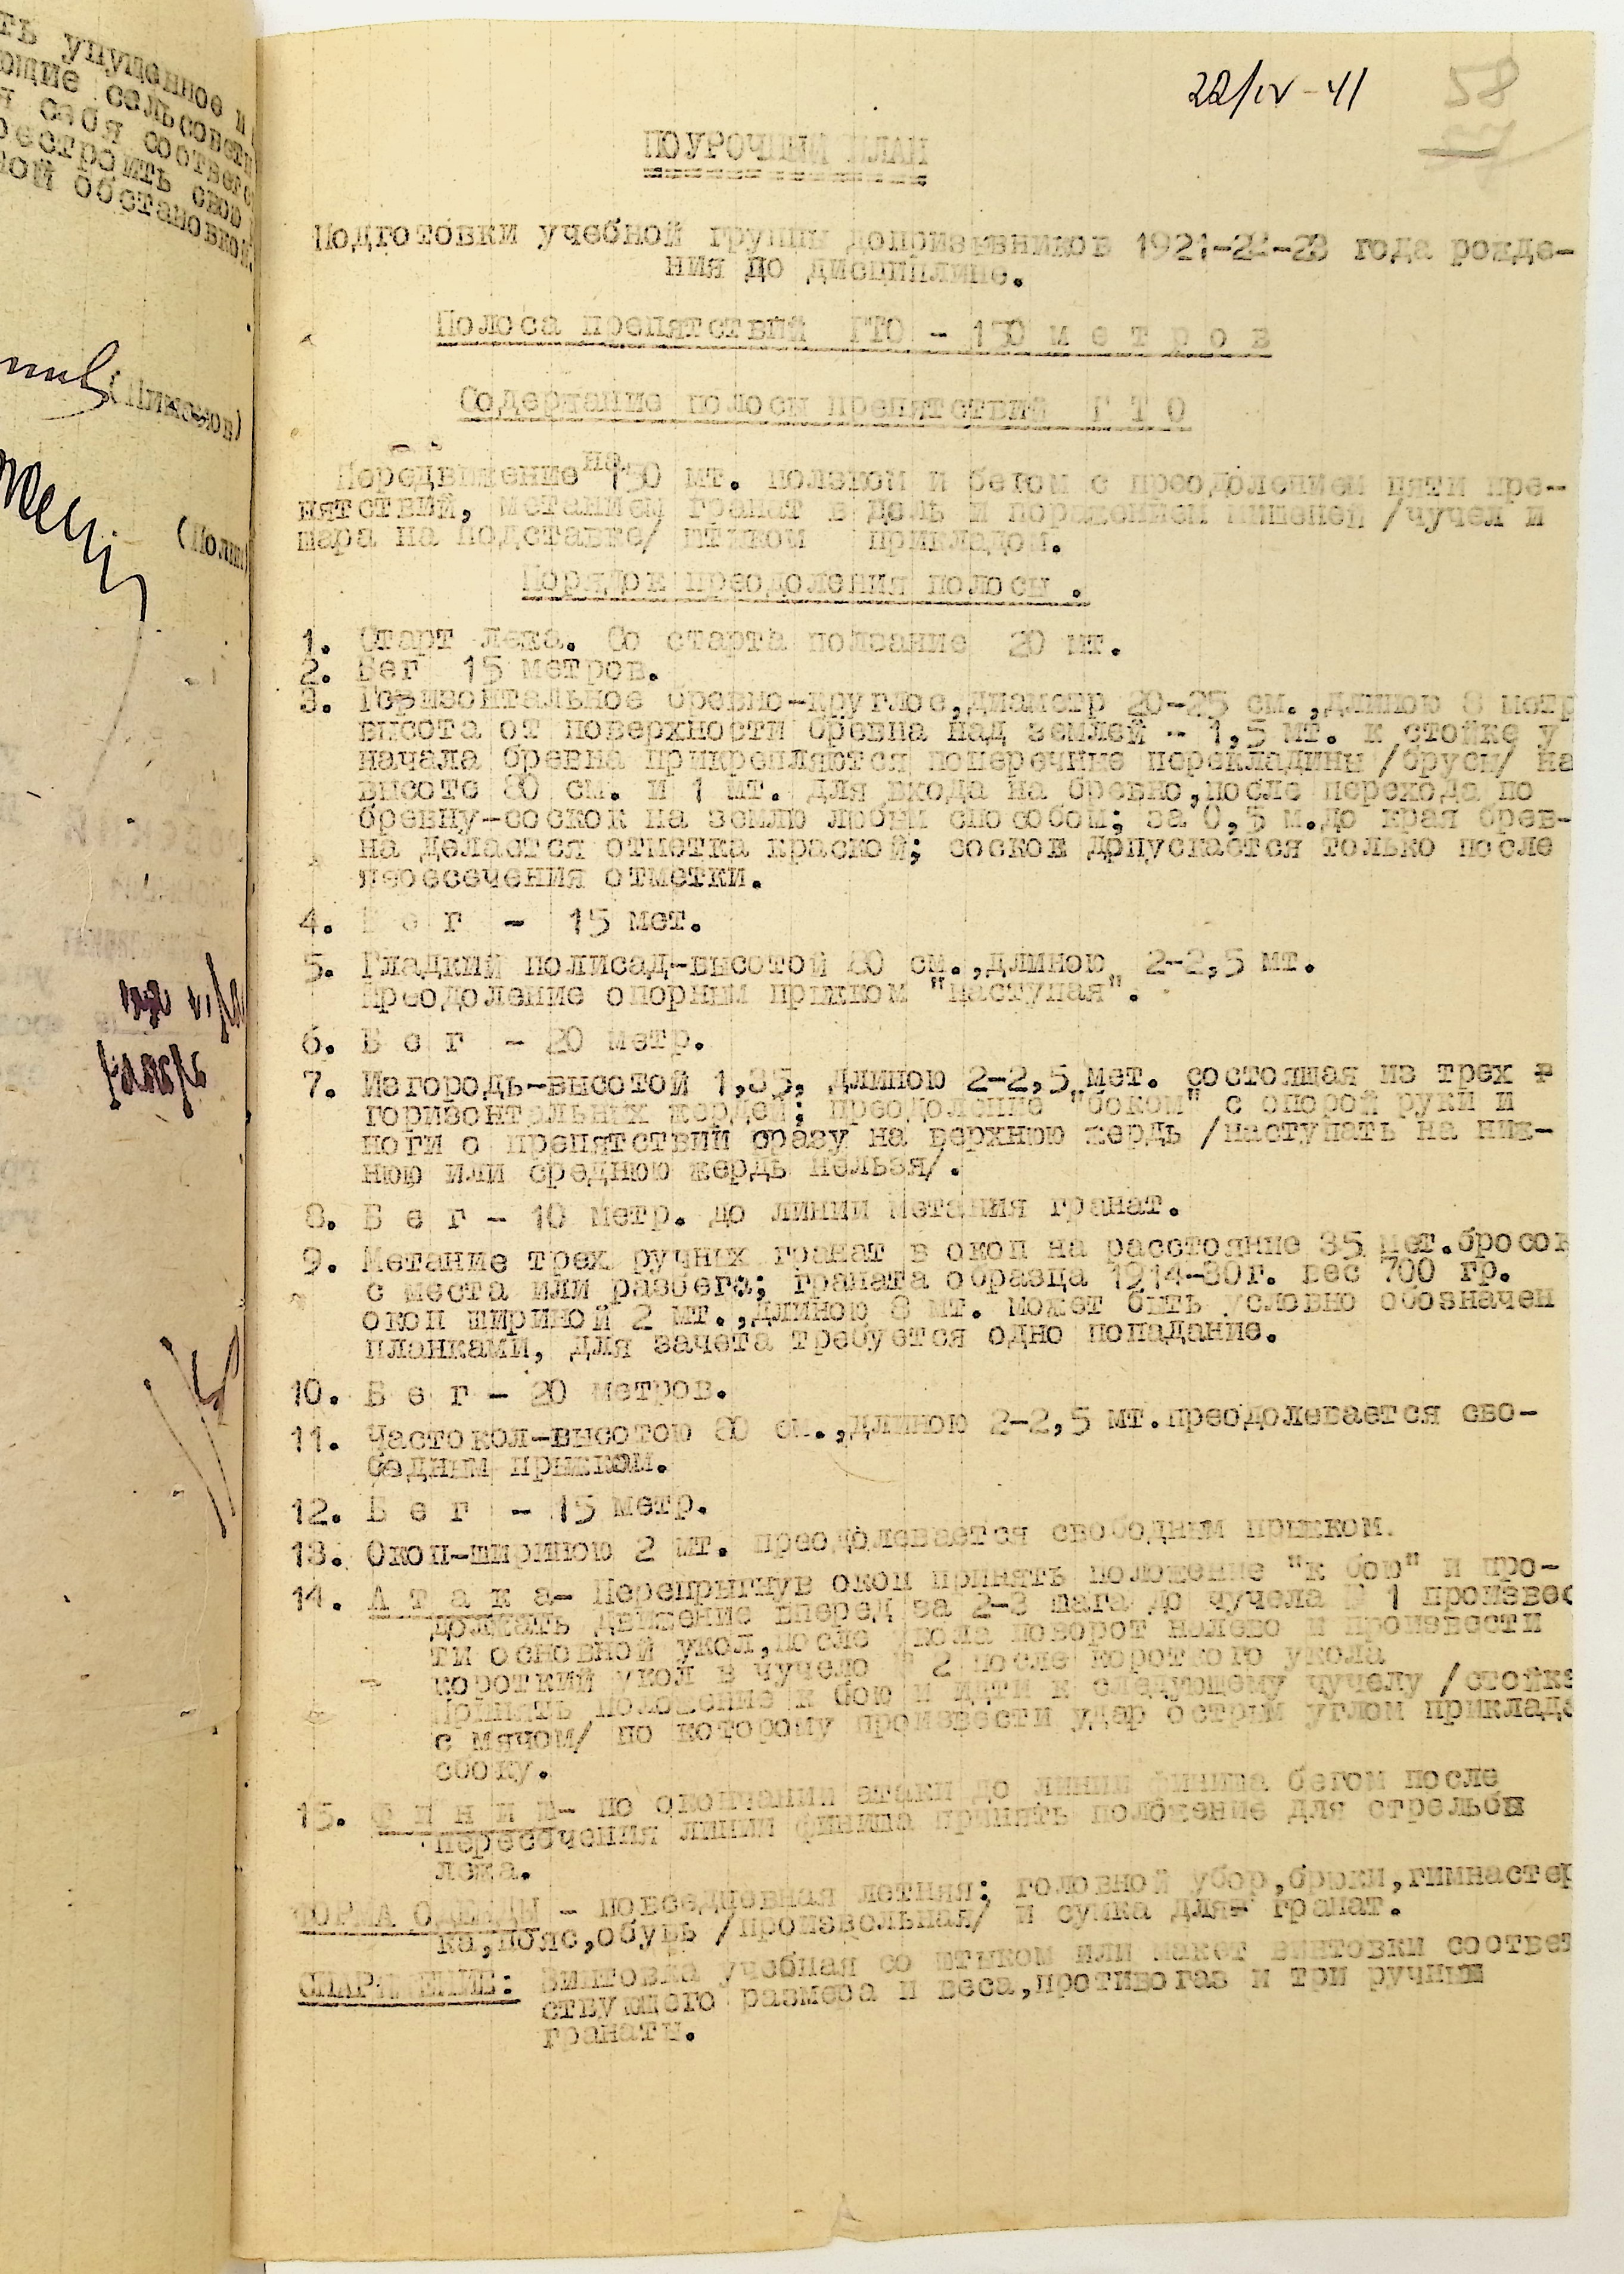 ть упущенное и
ющие сельсоветы
я себя соответс
рестроить свою
ной обстановкой.
22/IV-41
58
ПОУРОЧНЫЙ ПЛАН
Подготовки учебной группы допризывников 1921-22-23 года рожде-
ния до дисциплине.
Полоса препятствий ГТО - 150 м е т р о в
Содержание полосы препятствий Г Т О
Передвижение на 150 мт. ползком и бегом с преодолением пяти пре-
пятствий, метанием гранат в цель и поражением мишеней /чучел и
шара на подставке/ штыком прикладом.
Порядок преодоления полосы .
1. Старт лежа. Со старта ползание 20 мт.
2. Бег 15 метров.
3. Горизонтальное бревно-круглое,диаметр 20-25 см.,длиною 8 метр
высота от поверхности бревна над землей - 1,5 мт. к стойке у
начала бревна прикрепляются поперечные перекладины /брусы/ на
высоте 80 см. и 1 мт. для входа на бревно,после перехода по
бревну-соскок на землю любым способом; за 0,5 м.до края брев-
на делается отметка краской; соскок допускается только после
пересечения отметки.
4. Б е г - 15 мет.
5. Гладкий полисад-высотой 80 см.,длиною 2-2,5 мт.
Преодоление опорным прыжком "наступая".
6. Б е г - 20 метр.
7. Изгородь-высотой 1,35, длиною 2-2,5 мет. состоящая из трех г
горизонтальных жердей; преодоление "боком" с опорой руки и
ноги о препятствий сразу на верхнюю жердь /наступать на ниж-
нюю или среднюю жердь нельзя/.
8. Б е г - 10 метр. до линии метания гранат.
9. Метание трех ручных гранат в окоп на расстояние 35 мет.бросок
с места или разбега; граната образца 1914-30г. вес 700 гр.
окоп шириной 2 мт.,длиною 8 мт. может быть условно обозначен
планками, для зачета требуется одно попадание.
10. Б е г - 20 метров.
11. Частокол-высотою 80 см.,длиною 2-2,5 мт.преодолевается сво-
бодным прыжком.
12. Б е г - 15 метр.
13. Окоп-шириною 2 мт. преодолевается свободным прыжком.
14. А т а к а- Перепрыгнув окоп принять положение "к бою" и про-
должать движение вперед за 2-3 шага до чучела № 1 произвес
ти основной укол,после укола поворот налево и произвести
короткий укол в чучело № 2 после короткого укола
принять положение к бою и идти к следующему чучелу /стойка
с мячом/ по которому произвести удар острым углом приклада
сбоку.
15. Ф и н и ш- по окончании атаки до линии финиша бегом после
пересечения линии финиша принять положение для стрельбы
лежа.
ФОРМА ОДЕЖДЫ - повседневная летняя; головной убор,брюки,гимнастер
ка,пояс,обувь /произвольная/ и сумка для гранат.
СНАРЯЖЕНИЕ: Винтовка учебная со штыком или макет винтовки соответ
ствующего размера и веса,противогаз и три ручные
гранаты.